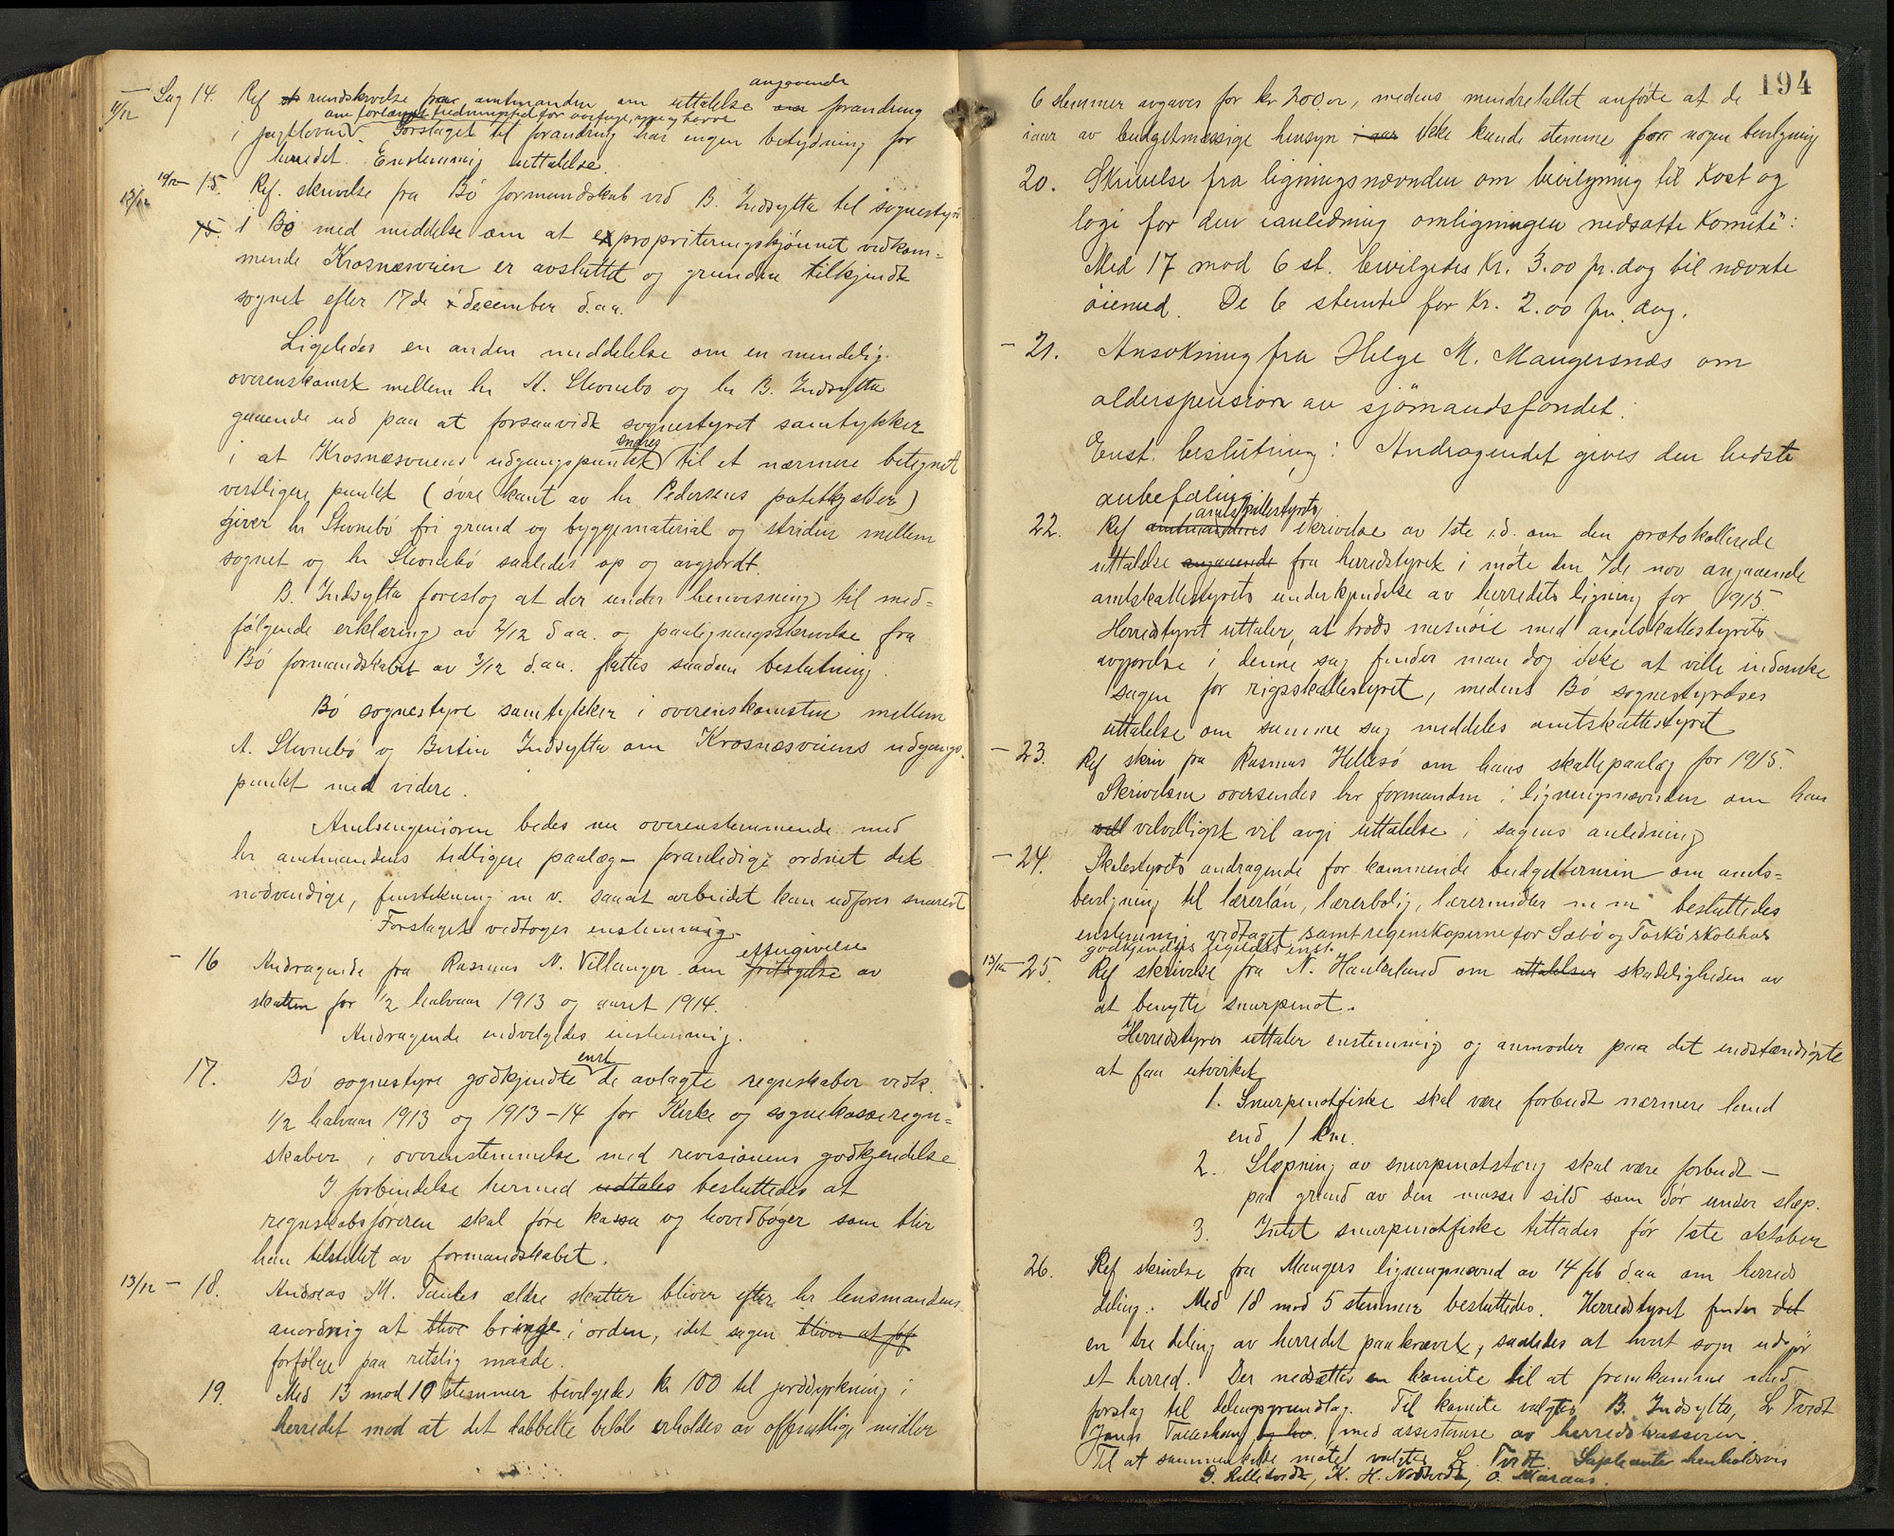 Sag 14. Ref rundskrivelse fra amtmanden om uttalelse angaaende forandring
11/12
om forlænget fredningstid for aarfugl, røi og harre
i jagtloven. Forslaget til forandring har ingen betydning for
heredet. Enstemmig uttalelse.
15. Ref. skrivelse fra Bö formandskab ved B. Indsylta til sognestyr
i Bö med middelse om at expropriteringskjönnet vedkom-
mende Krosnæsveien er avsluttet og grunden tilkjendt
sognet efter 17de december d.aa.
Ligeledes en anden meddelelse om en mindelig
overenskomst mellem hr A. Storebö og hr B. Indsylta
gaaende ud paa at forsaavidt sognestyret samtykker
i at Krosnæsveiens udgangspunkt endres til et nærmere betegnet
vestligere punkt (övre kant av hr Pedersens potetkjælder)
giver hr Storebö fri grund og byggematerial og striden mellem
sognet og hr Storebö saaledes op og avgjordt.
B. Indsylta foreslog at der under henvisning til med-
fölgende erklæring av 2/12 d aa. og paaligningsskrivelse fra
Bö formandskabet av 3/12 d.aa. fattes saadan beslutning.
Bö sognestyre samtykker i overenskomsten mellem
A. Storebö og Bertin Indsylta om Krosnæsveiens udgangs
punkt med videre.
Amtsingeniören bedes nu overenstemmende med
hr amtmandens tidligere paalæg foranledige ordnet det
nödvendige, finstikning m v. saaat arbeidet kan udföres snarest
Forslaget vedtoges enstemmig.
- 16 Andragende fra Rasmus N. Vollanger om eftergivelse av
skatten for 1/2 halvaar 1913 og aaret 1914.
Andragende indvilgedes enstemmig.
17. Bö sognestyre godkjendte enst de avlagte regnskaber vedk.
1/2 halvaar 1913 og 1913-14 for Kirke og sognekasseregn-
skaber i overenstemmelse med revisionens godkjendelse
I forbindelse hermed udtales besluttedes at
regnskabsföreren skal före kassa og hovedböger som blir
ham tilstillet av formandskabet.
13/12 - 18. Andreas M. Toules ældre skatter bliver efter hr lensmandens
anordnig at bringe i orden, idet sagen bliver at
forfölge paa retslig maade.
19. Med 13 mod 10 stemmer bevilgedes kr 100 til jorddyrkning i
herredet mod at det dobbelte belöb erholdes av offentlige midler
194
6 stemmer avgaves for kr 200,00, medens mindretallet anförte at de
iaar av budgetmæssige hensyn ikke kunde stemme for nogen bevilgning
20. Skrivelse fra ligningsnævnden om bevilgning til Kost og
logi for den ianledning omligningen nedsatte Komite:
Med 17 mod 6 st. bevilgedes Kr. 3.00 pr. dag til nævnte
öiemed. De 6 stemte for Kr. 2.00 pr. dag.
- 21. Ansökning fra Helge M. Mangersnæs om
alderspension av sjömandsfondet.
Enst. beslutning: Andragendet gives den bedste
anbefaling.
22. Ref amtskattestyrets skrivelse av 1ste d.d. om den protokollerede
uttalelse angaaende fra herredstyret i möte den 7de nov angaaende
amtskattestyrets underkjendelse av herredets ligning for 1915
Herredstyret uttaler, at trods misnöie med amtskattestyrets
avgjörelse i denne sag finder man dog ikke at ville indanke
sagen for rigsskattestyret, medens Bö sognestyrelses
uttalelse om samme sag meddeles amtskattestyret
- 23. Ref skriv fra Rasmus Hellesö om hans skattepaalæg for 1915.
Skrivelsen oversendes hr formanden i ligningsnævnden om han
velvilligst vil avgi uttalelse i sagens anledning
- 24. Skolestyrets andragende for kommende budgettermin om amts-
bevilgning til lærerlön, lærerbolig, læremidler m m besluttedes
enstemmig vedtaget samt regnskaperne for Sæbö og Toskö skolehus
godkjendtes ligeledes enst.
13/12 - 25. Ref skrivelse fra N. Haukeland om skadeligheden av
at benytte snurpenot.
Herredstyre uttaler enstemmig og anmoder paa det indstændigste
at faa utvirket
1. Snurpenotfiske skal være forbudt nærmere land
end 1 km.
2. Slæpning av snurpenotstæng skal være forbudt -
paa grund av den masse sild som dör under slæp.
3. Intet snurpenotfiske tillades för 1ste oktober
26. Ref skrivelse fra Mangers ligningsnævnd av 14 feb d.aa om herreds
deling. Med 18 mod 5 stemmer besluttedes. Herredstyret finder det
en tre deling av herredet paakrævet, saaledes at hvert sogn udgjör
et herred. Der nedsættes en komite til at fremkomme med
forslag til delingsgrundlag. Til komite valgtes B. Indsylta, L. Tvedt
Jonas med assistanse av herredskasseren.
Til at sammenkalde mötet valgtes L. Tvedt Suplanter henholdsvis